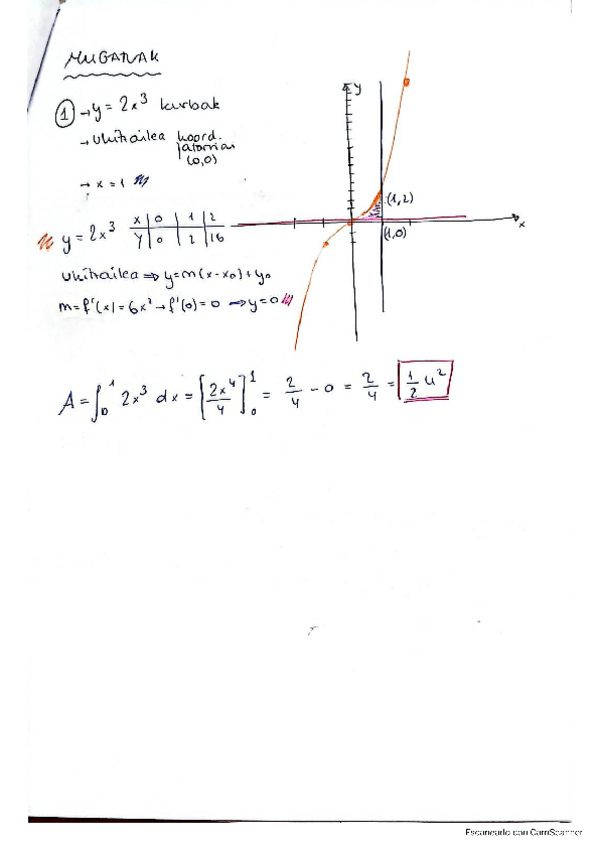 MUGAPAK
① → y = 2x³ kurbak
→ Ukitzailea koord. jatorrian (0,0)
→ x = 1
y
(1,2)
(1,0)
x
y = 2x³
x | 0 | 1 | 2
y | 0 | 2 | 16
Ukitzailea ⇒ y = m(x - x₀) + y₀
m = f'(x) = 6x² → f'(0) = 0 ⇒ y = 0
A = ∫₀¹ 2x³ dx = [2x⁴/4]₀¹ = 2/4 - 0 = 2/4 = 1/2 u²
Escaneado con CamScanner